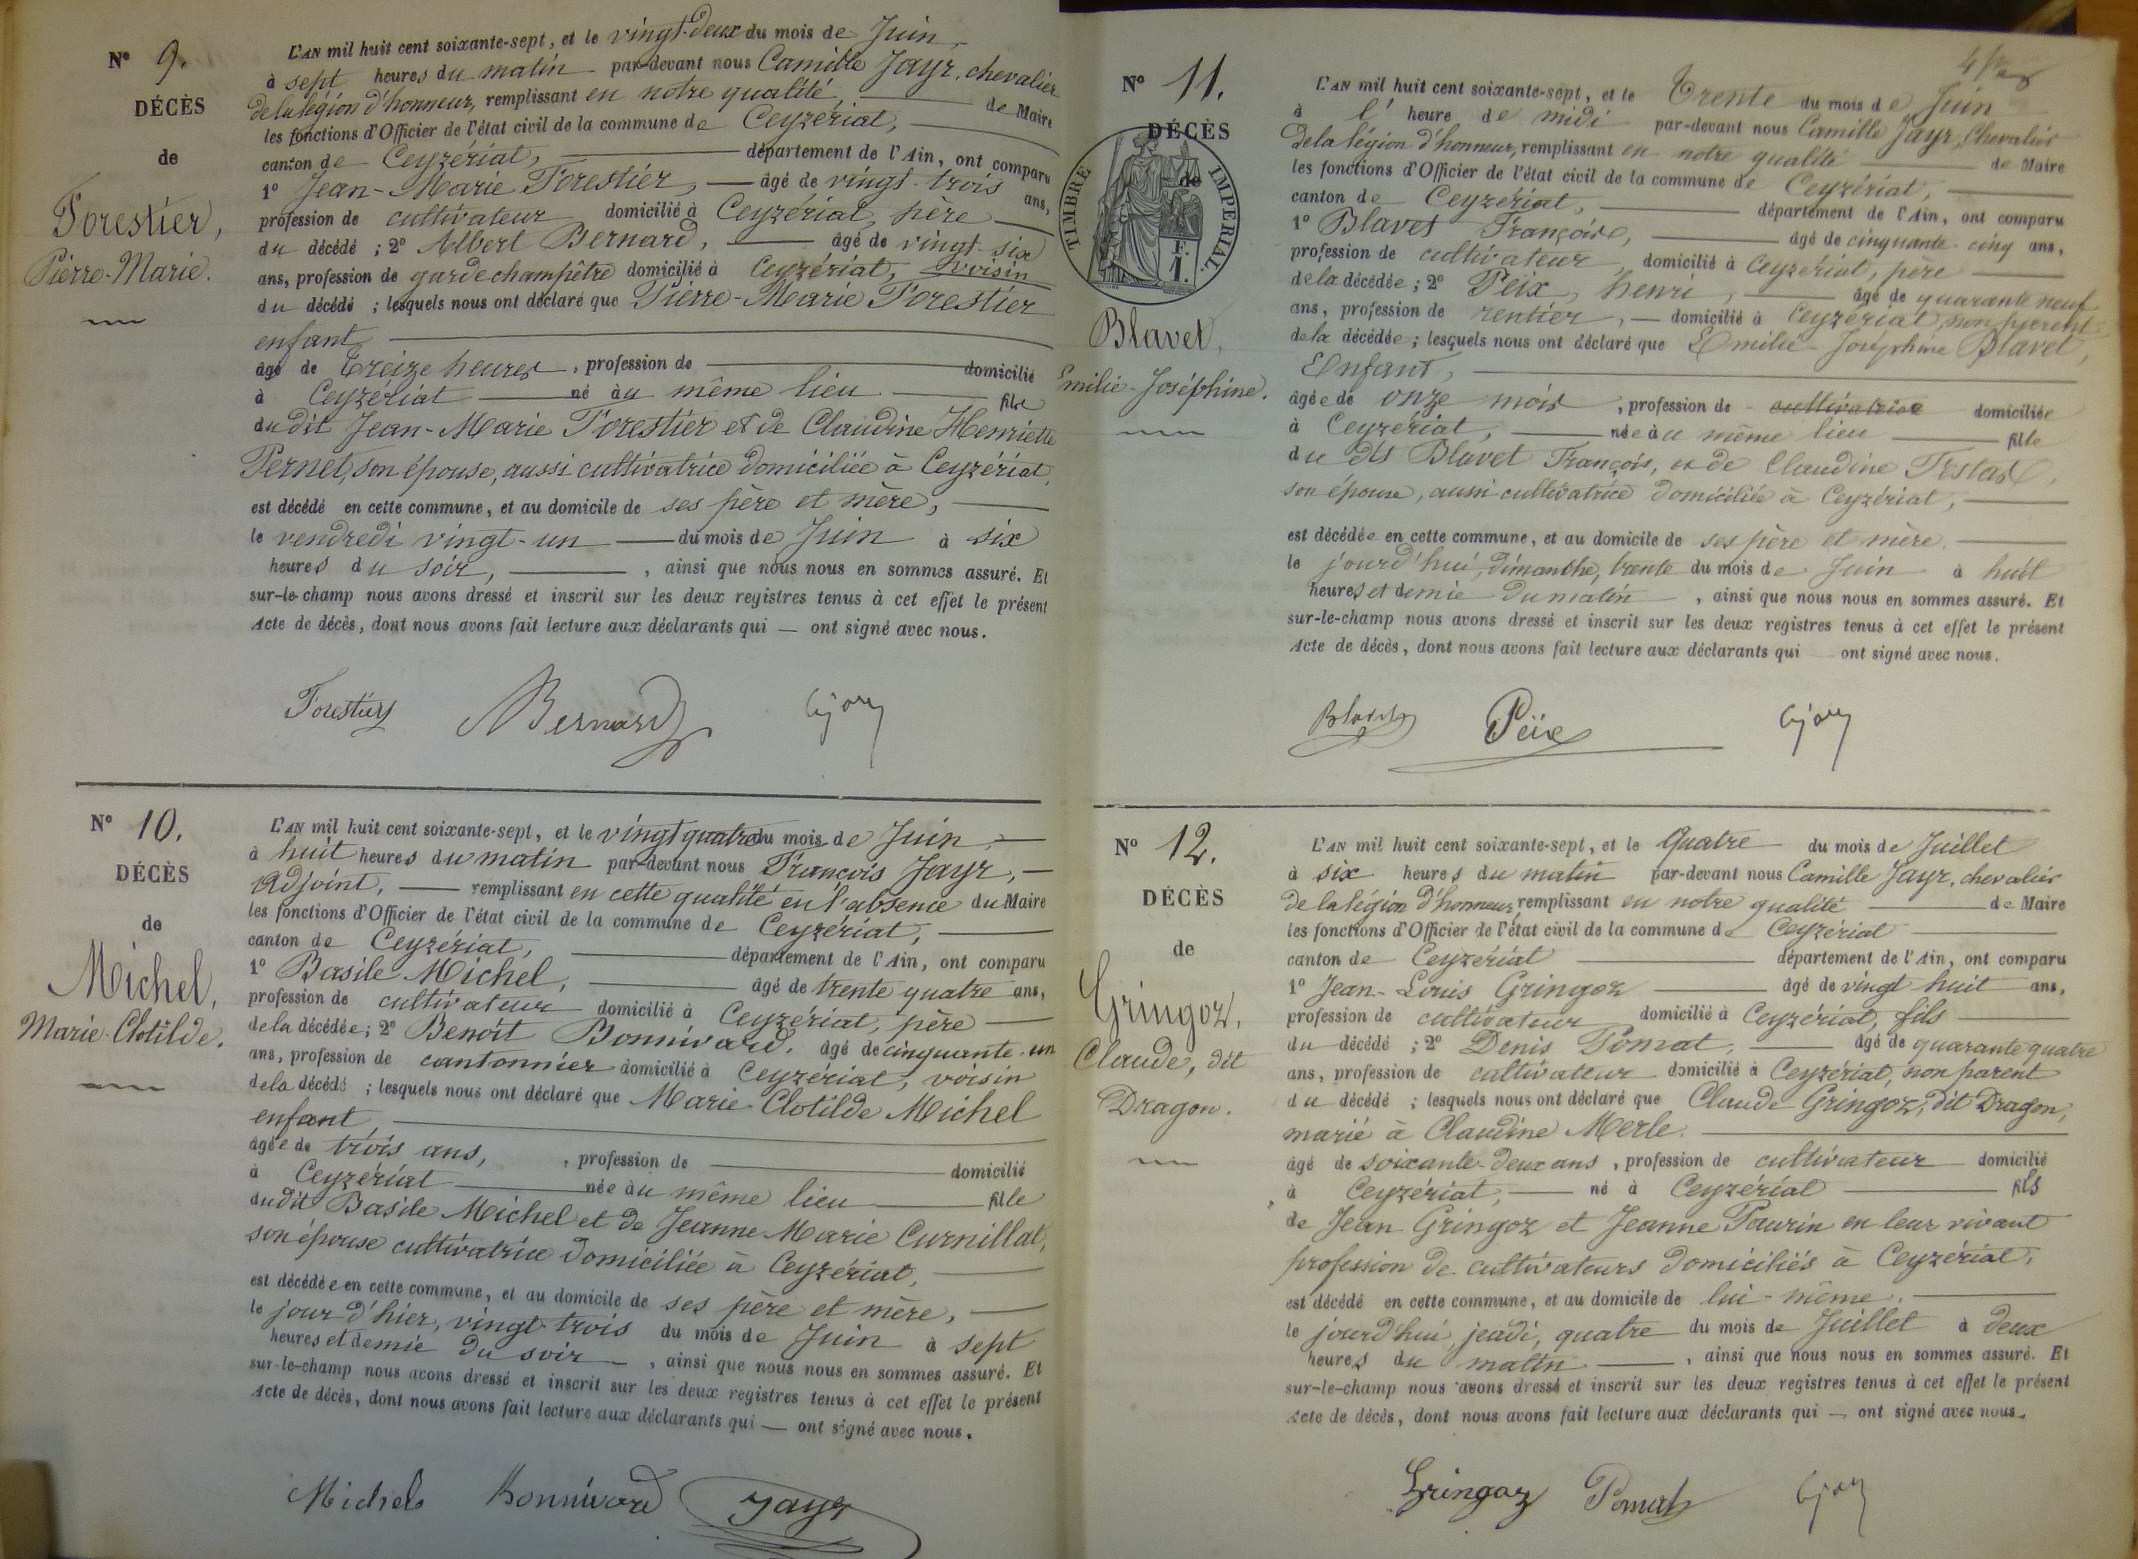 N° 9.
DÉCÈS
de
Forestier,
Pierre-Marie.
L'AN mil huit cent soixante-sept, et le vingt-deux du mois de Juin
à sept heures du matin par-devant nous Camille Jayr, chevalier
de la légion d'honneur, remplissant en notre qualité de Maire
les fonctions d'Officier de l'état civil de la commune de Ceyzériat,
canton de Ceyzériat, département de l'Ain, ont comparu
1° Jean-Marie Forestier, âgé de vingt-trois ans,
profession de cultivateur domicilié à Ceyzériat, père
du décédé ; 2° Albert Bernard, âgé de vingt-six
ans, profession de garde champêtre domicilié à Ceyzériat, voisin
du décédé ; lesquels nous ont déclaré que Pierre-Marie Forestier
enfant
âgé de treize heures, profession de domicilié
à Ceyzériat né au même lieu fils
du dit Jean-Marie Forestier et de Claudine Henriette
Pernet, son épouse, aussi cultivatrice domiciliée à Ceyzériat,
est décédé en cette commune, et au domicile de ses père et mère,
le vendredi vingt-un du mois de Juin à six
heures du soir, , ainsi que nous nous en sommes assuré. Et
sur-le-champ nous avons dressé et inscrit sur les deux registres tenus à cet effet le présent
Acte de décès, dont nous avons fait lecture aux déclarants qui — ont signé avec nous.
Forestier Bernard
N° 10.
DÉCÈS
de
Michel,
Marie-Clotilde.
L'AN mil huit cent soixante-sept, et le vingt quatre du mois de Juin
à huit heures du matin par-devant nous François Jayr,
Adjoint, remplissant en cette qualité en l'absence du Maire
les fonctions d'Officier de l'état civil de la commune de Ceyzériat,
canton de Ceyzériat, département de l'Ain, ont comparu
1° Basile Michel, âgé de trente quatre ans,
profession de cultivateur domicilié à Ceyzériat, père
de la décédée ; 2° Benoît Bonnivard, âgé de cinquante-un
ans, profession de cantonnier domicilié à Ceyzériat, voisin
de la décédé ; lesquels nous ont déclaré que Marie Clotilde Michel
enfant
âgée de trois ans, , profession de domicilié
à Ceyzériat née au même lieu fille
du dit Basile Michel et de Jeanne Marie Curnillat,
son épouse cultivatrice domiciliée à Ceyzériat,
est décédée en cette commune, et au domicile de ses père et mère,
le jour d'hier, vingt-trois du mois de Juin à sept
heures et demie du soir , ainsi que nous nous en sommes assuré. Et
sur-le-champ nous avons dressé et inscrit sur les deux registres tenus à cet effet le présent
Acte de décès, dont nous avons fait lecture aux déclarants qui — ont signé avec nous.
Michel Bonnivard Jayr
N° 11.
DÉCÈS
de
TIMBRE IMPERIAL.
F.
1.
Blavet,
Emilie-Joséphine.
L'AN mil huit cent soixante-sept, et le Trente du mois de Juin
à l' heure de midi par-devant nous Camille Jayr, Chevalier
de la légion d'honneur, remplissant en notre qualité de Maire
les fonctions d'Officier de l'état civil de la commune de Ceyzériat,
canton de Ceyzériat, département de l'Ain, ont comparu
1° Blavet Françoise, âgé de cinquante-cinq ans,
profession de cultivateur, domicilié à Ceyzériat, père
de la décédée ; 2° Péix, henri, âgé de quarante neuf
ans, profession de rentier, domicilié à Ceyzériat, non parent
de la décédée ; lesquels nous ont déclaré que Emilie-Joséphine Blavet,
Enfant,
âgée de onze mois , profession de cultivatrice domiciliée
à Ceyzériat, née au même lieu fille
du dts Blavet François, et de Claudine
son épouse, aussi cultivatrice domiciliée à Ceyzériat,
est décédée en cette commune, et au domicile de ses père et mère.
le jourd'hui, dimanche, trente du mois de Juin à huit
heures et demie du matin , ainsi que nous nous en sommes assuré. Et
sur-le-champ nous avons dressé et inscrit sur les deux registres tenus à cet effet le présent
Acte de décès, dont nous avons fait lecture aux déclarants qui ont signé avec nous.
Blavet Péix
N° 12.
DÉCÈS
de
Gringoz,
Claude, dit
Dragon.
L'AN mil huit cent soixante-sept, et le Quatre du mois de Juillet
à six heures du matin par-devant nous Camille Jayr, chevalier
de la légion d'honneur, remplissant en notre qualité de Maire
les fonctions d'Officier de l'état civil de la commune de Ceyzériat
canton de Ceyzériat département de l'Ain, ont comparu
1° Jean-Louis Gringoz âgé de vingt huit ans,
profession de cultivateur domicilié à Ceyzériat, fils
du décédé ; 2° Denis Pomat, âgé de quarante quatre
ans, profession de cultivateur domicilié à Ceyzériat, non parent
du décédé ; lesquels nous ont déclaré que Claude Gringoz, dit Dragon,
marié à Claudine Merle.
âgé de soixante-deux ans , profession de cultivateur domicilié
à Ceyzériat, né à Ceyzériat fils
de Jean Gringoz et Jeanne Paurin en leur vivant
profession de cultivateurs domiciliés à Ceyzériat.
est décédé en cette commune, et au domicile de lui-même.
le jourd'hui, jeudi, quatre du mois de Juillet à deux
heures du matin , ainsi que nous nous en sommes assuré. Et
sur-le-champ nous avons dressé et inscrit sur les deux registres tenus à cet effet le présent
Acte de décès, dont nous avons fait lecture aux déclarants qui — ont signé avec nous.
Gringoz Pomat